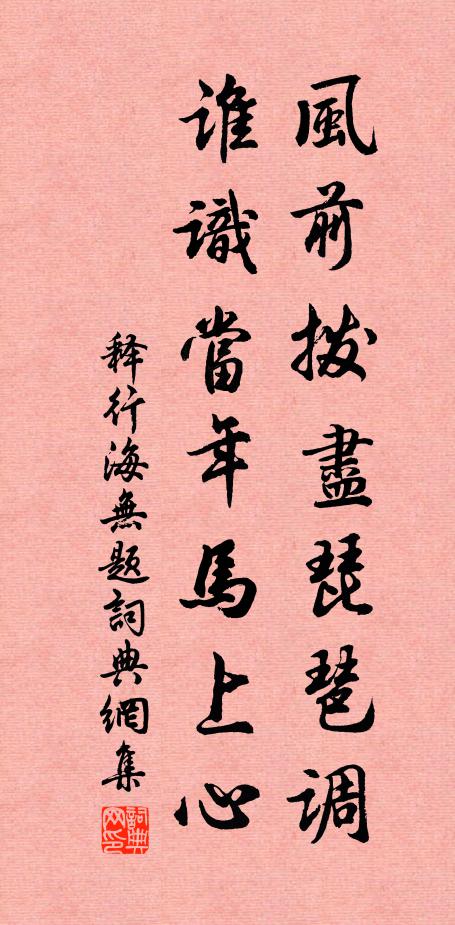 風前拨盡琵琶調
誰識當年馬上心
释行海無题詞典網集
詞典网印